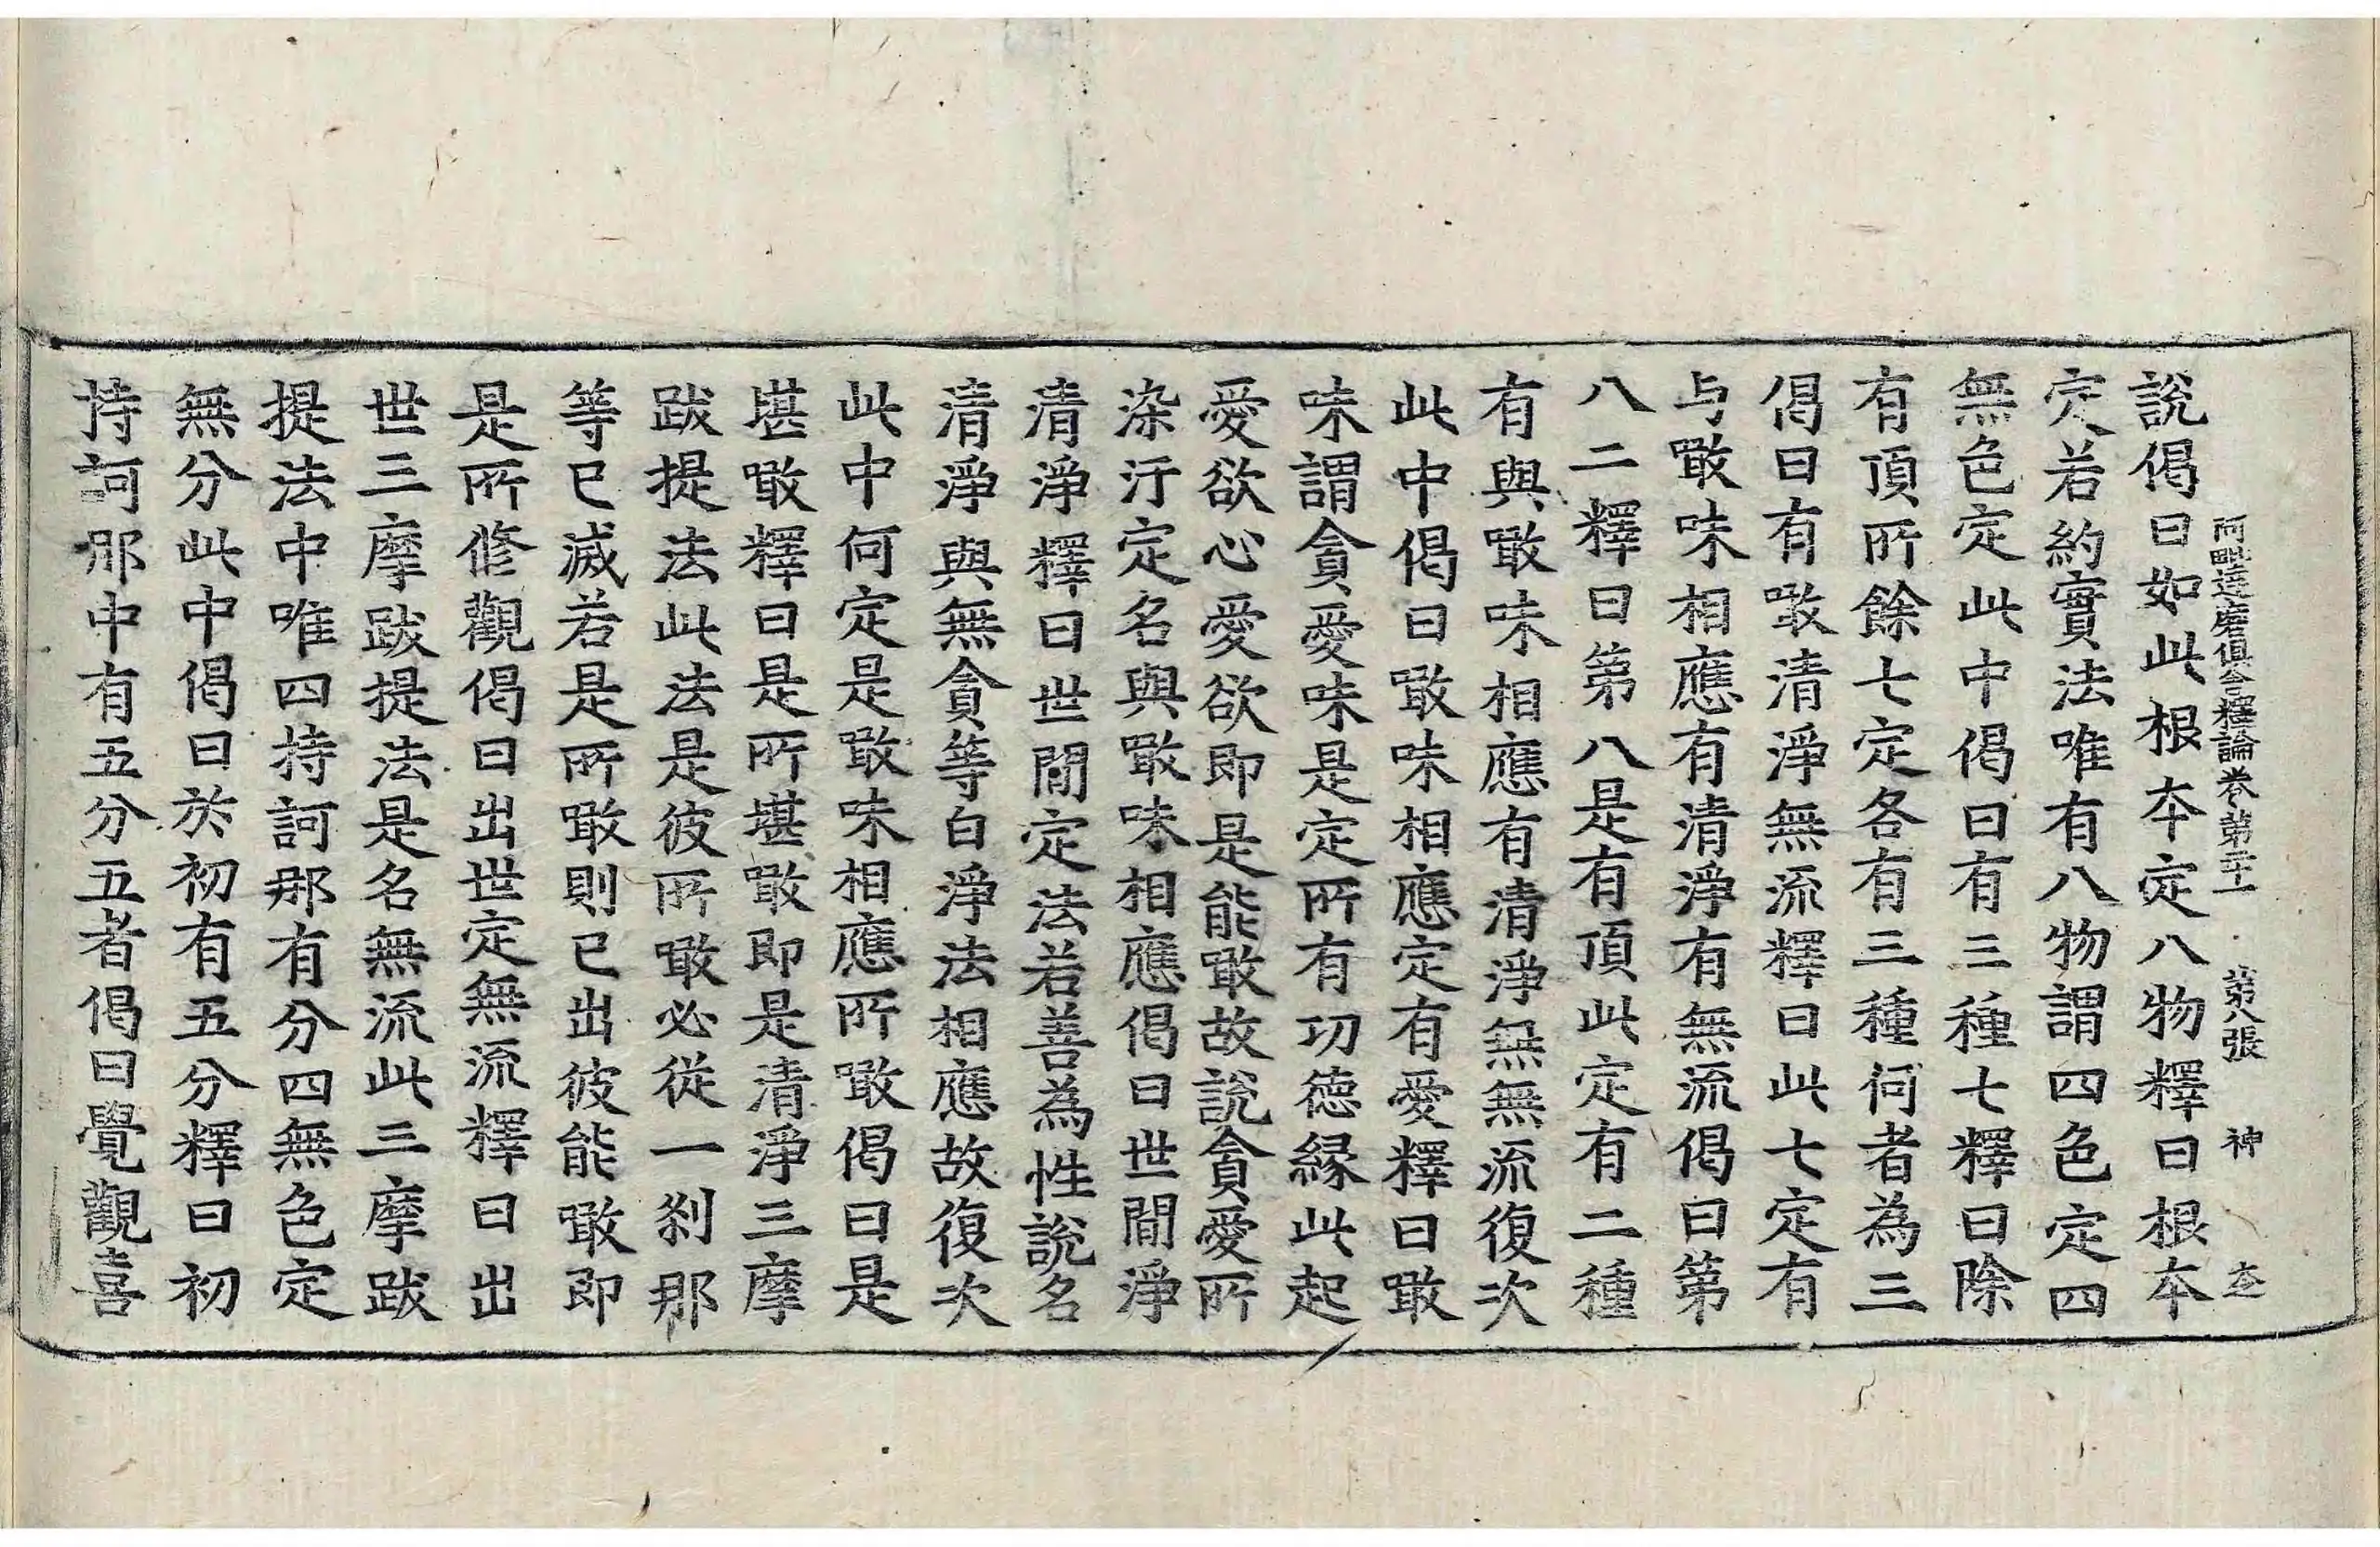 阿毗達磨俱舍釋論卷第二十一 第八張 神
說偈曰如此根本定八物釋曰根本
定若約實法唯有八物謂四色定四
無色定此中偈曰有三種七釋曰除
有頂所餘七定各有三種何者為三
偈曰有噉清淨無流釋曰此七定有
与噉味相應有清淨有無流偈曰第
八二釋曰第八是有頂此定有二種
有與噉味相應有清淨無無流復次
此中偈曰噉味相應定有愛釋曰噉
味謂貪愛味是定所有功德緣此起
愛欲心愛愛欲即是能噉故說貪愛所
染汙定名與噉味相應偈曰世間淨
清淨釋曰世間定法若善為性說名
清淨與無貪等白淨法相應故復次
此中何定是噉味相應所噉偈曰是
堪噉釋曰是所堪噉即是清淨三摩
跋提法此法是彼所噉必從一剎那
等已滅若是所噉則已出彼能噉即
是所修觀偈曰出世定無流釋曰出
世三摩跋提法是名無流此三摩跋
提法中唯四持訶那有分四無色定
無分此中偈曰於初有五分釋曰初
持訶那中有五分五者偈曰覺觀喜